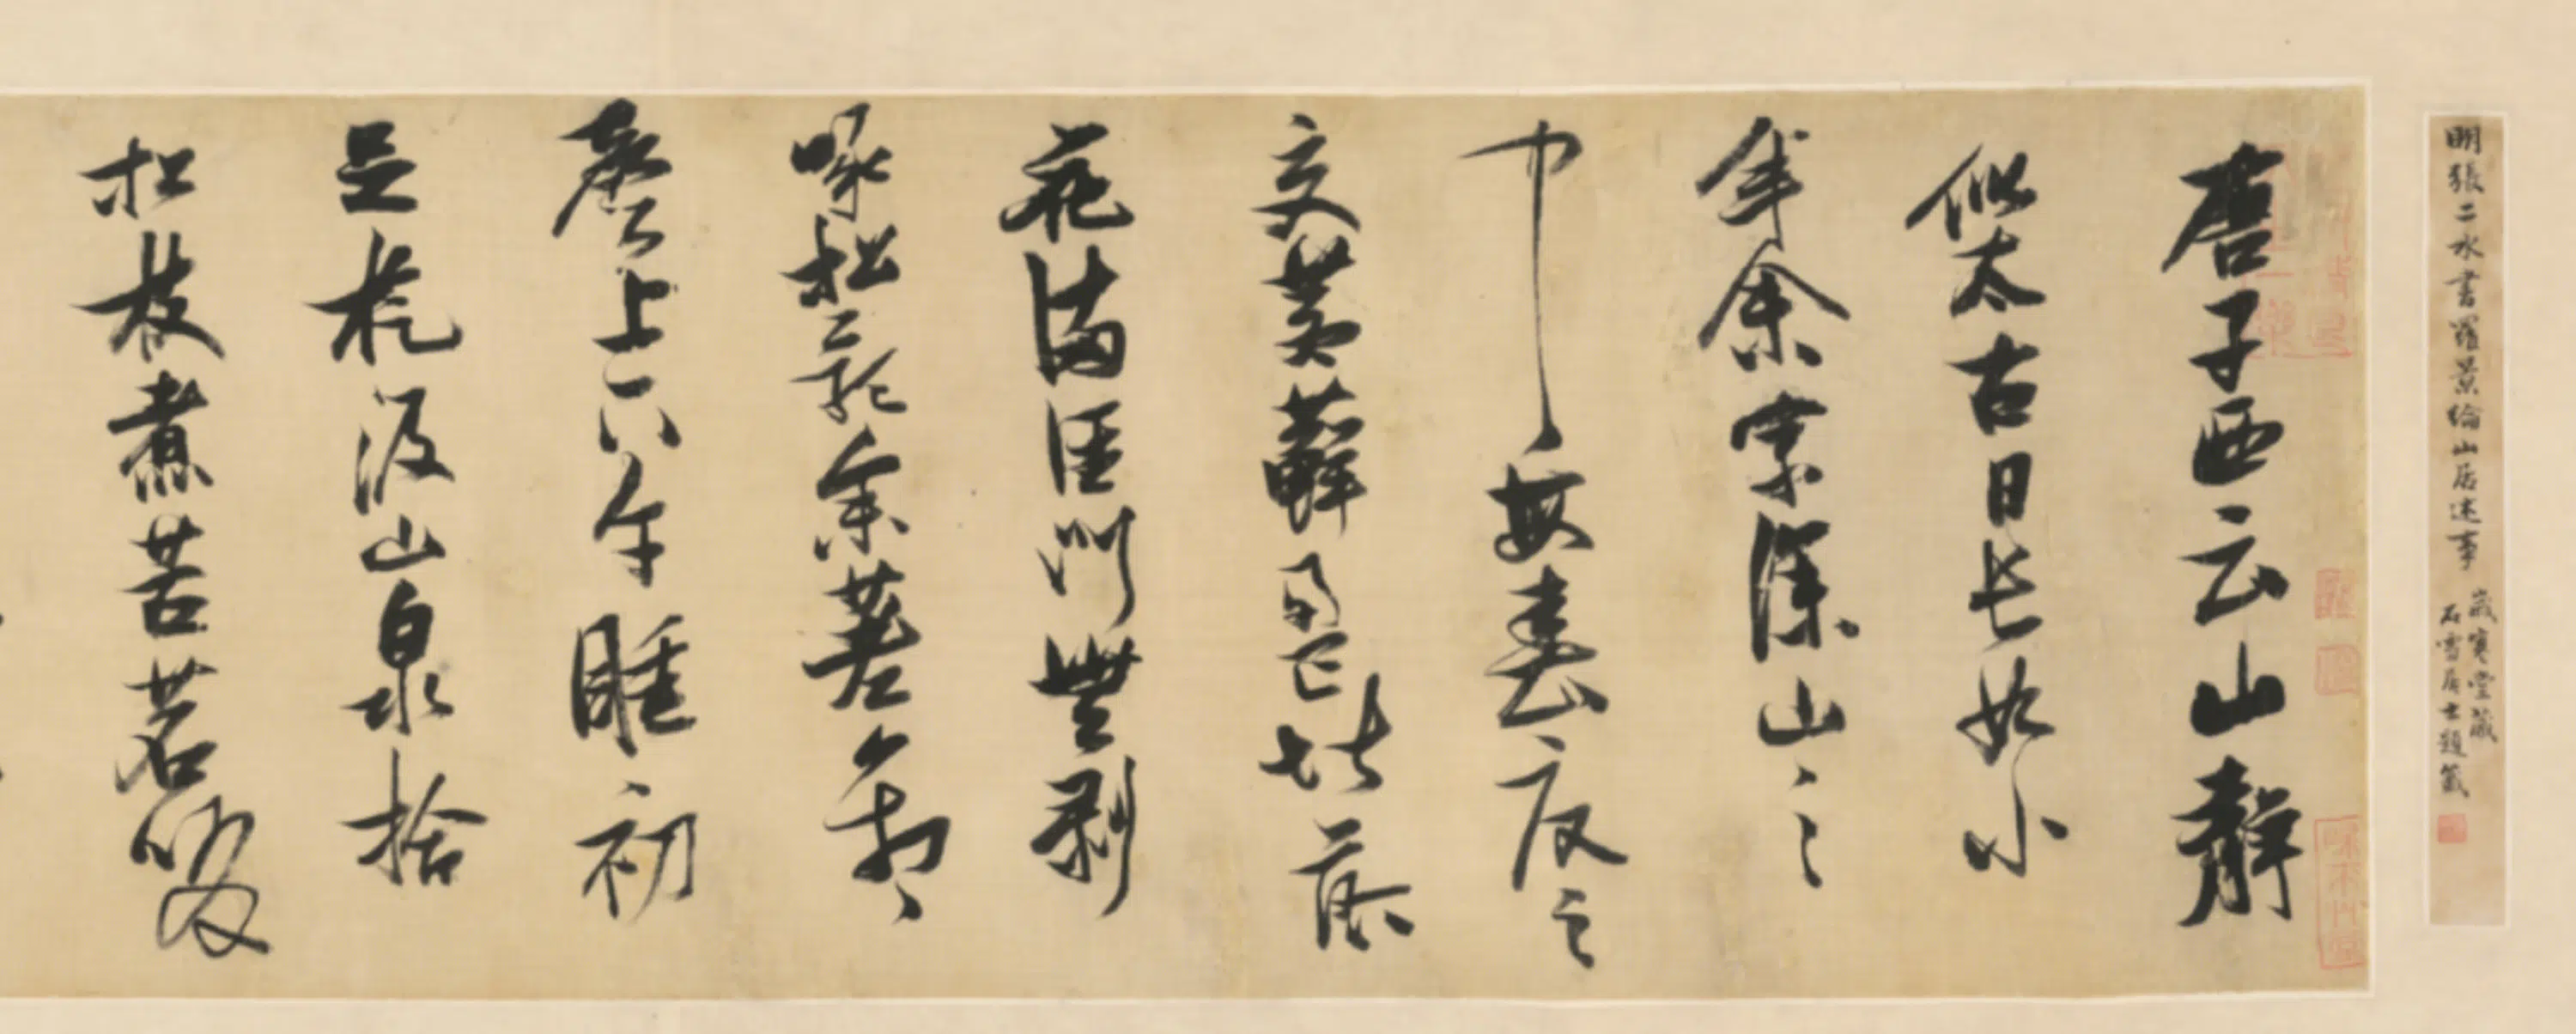 明張二水書羅景綸山居述事
歲寒堂藏
石雪居士題籤
唐子西云山靜
似太古日長如小
年余家深山之
中每春夏之
交蒼蘚盈堦落
花滿徑門無剝
啄松影參差禽
聲上下午睡初
足旋汲山泉拾
松枝煮苦茗啜